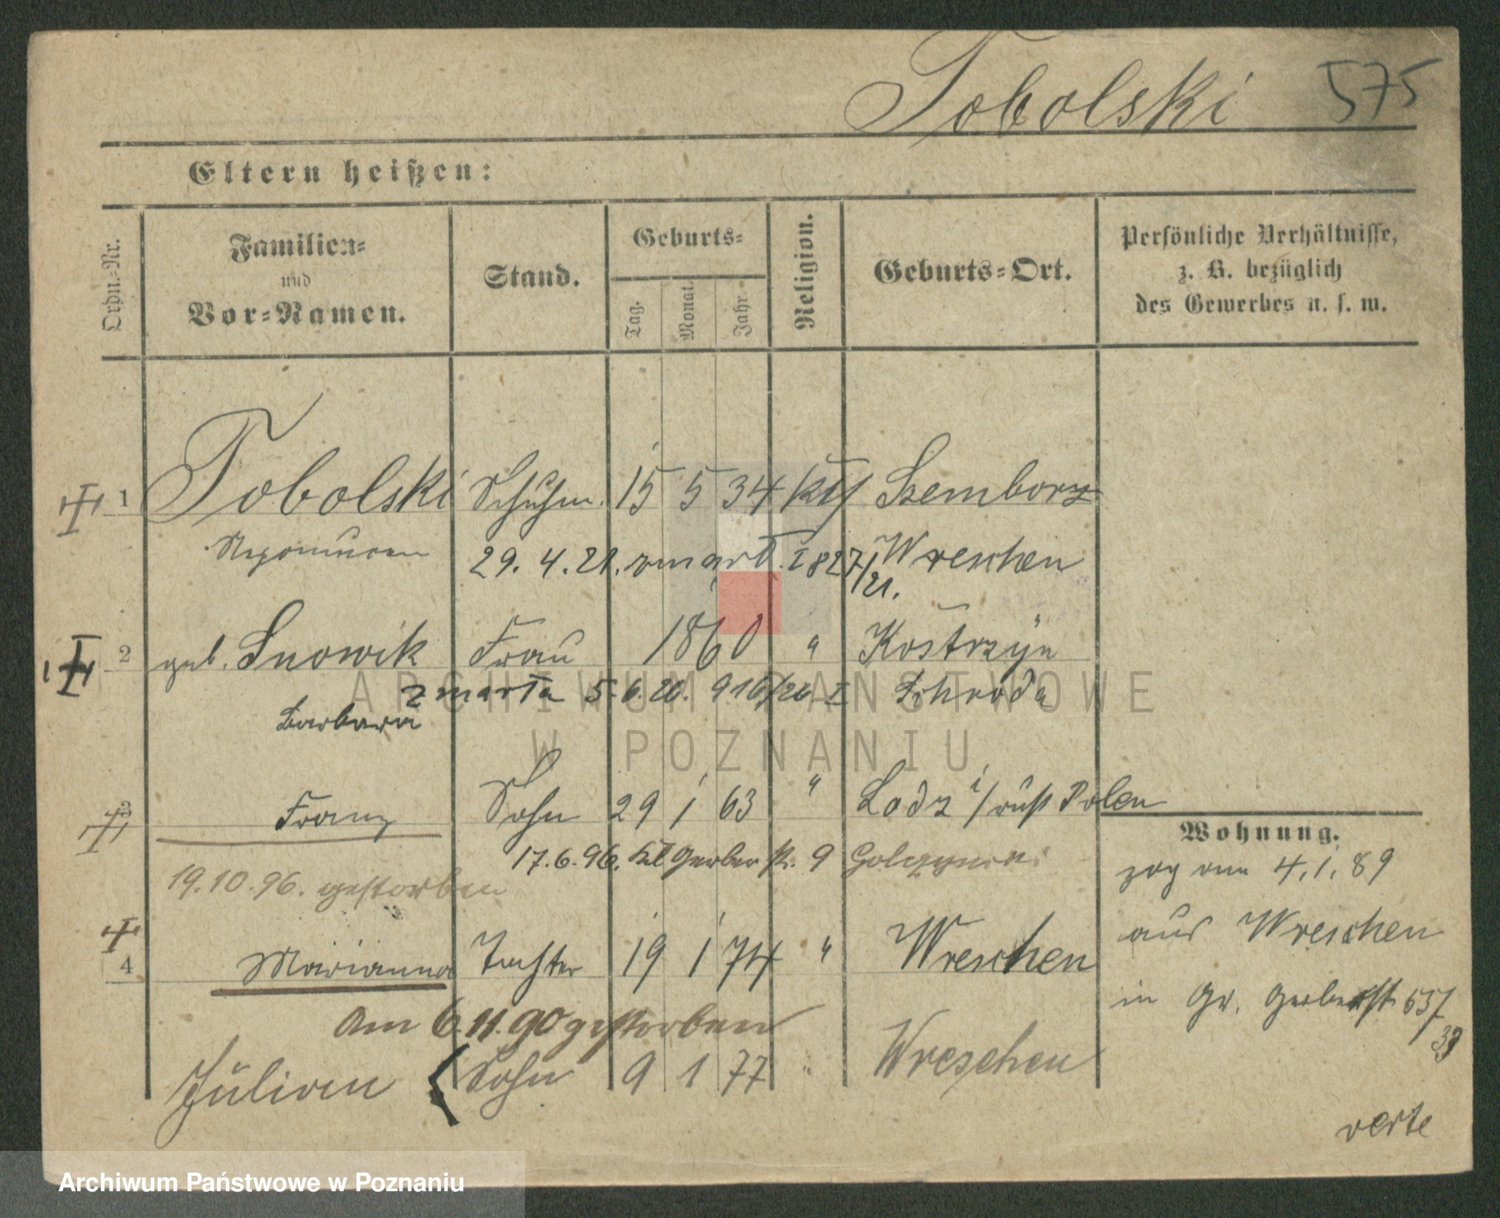 Tobolski 575
Eltern heißen:
Ordn.-Nr.
Familien-
und
Vor-Namen.
Stand.
Geburts-
Tag.
Monat.
Jahr.
Religion.
Geburts-Ort.
Persönliche Verhältnisse,
z. B. bezüglich
des Gewerbes u. s. w.
1 Tobolski Schuhm. 15 5 34 kth Szemborz
Nepomucen 29. 4. 21. zmarł. I 827/21. Wreschen
2 geb. Snowik Frau 1860 " Kostrzyn
zmarła 5. 6. 20. 916/20. I Schroda
Barbara
3 Franz Sohn 29 1 63 " Lodz i/ruß Polen
17.6.96. Kl Gerber str. 9
19.10.96. gestorben
4 Marianna Tochter 19 1 74 " Wreschen
Am 6.11.90 gestorben
Julian Sohn 9 1 77 " Wreschen
Wohnung.
zog am 4.1.89
aus Wreschen
in Gr. Gerberst
39
verte
ARCHIWUM PAŃSTWOWE
W POZNANIU
Archiwum Państwowe w Poznaniu